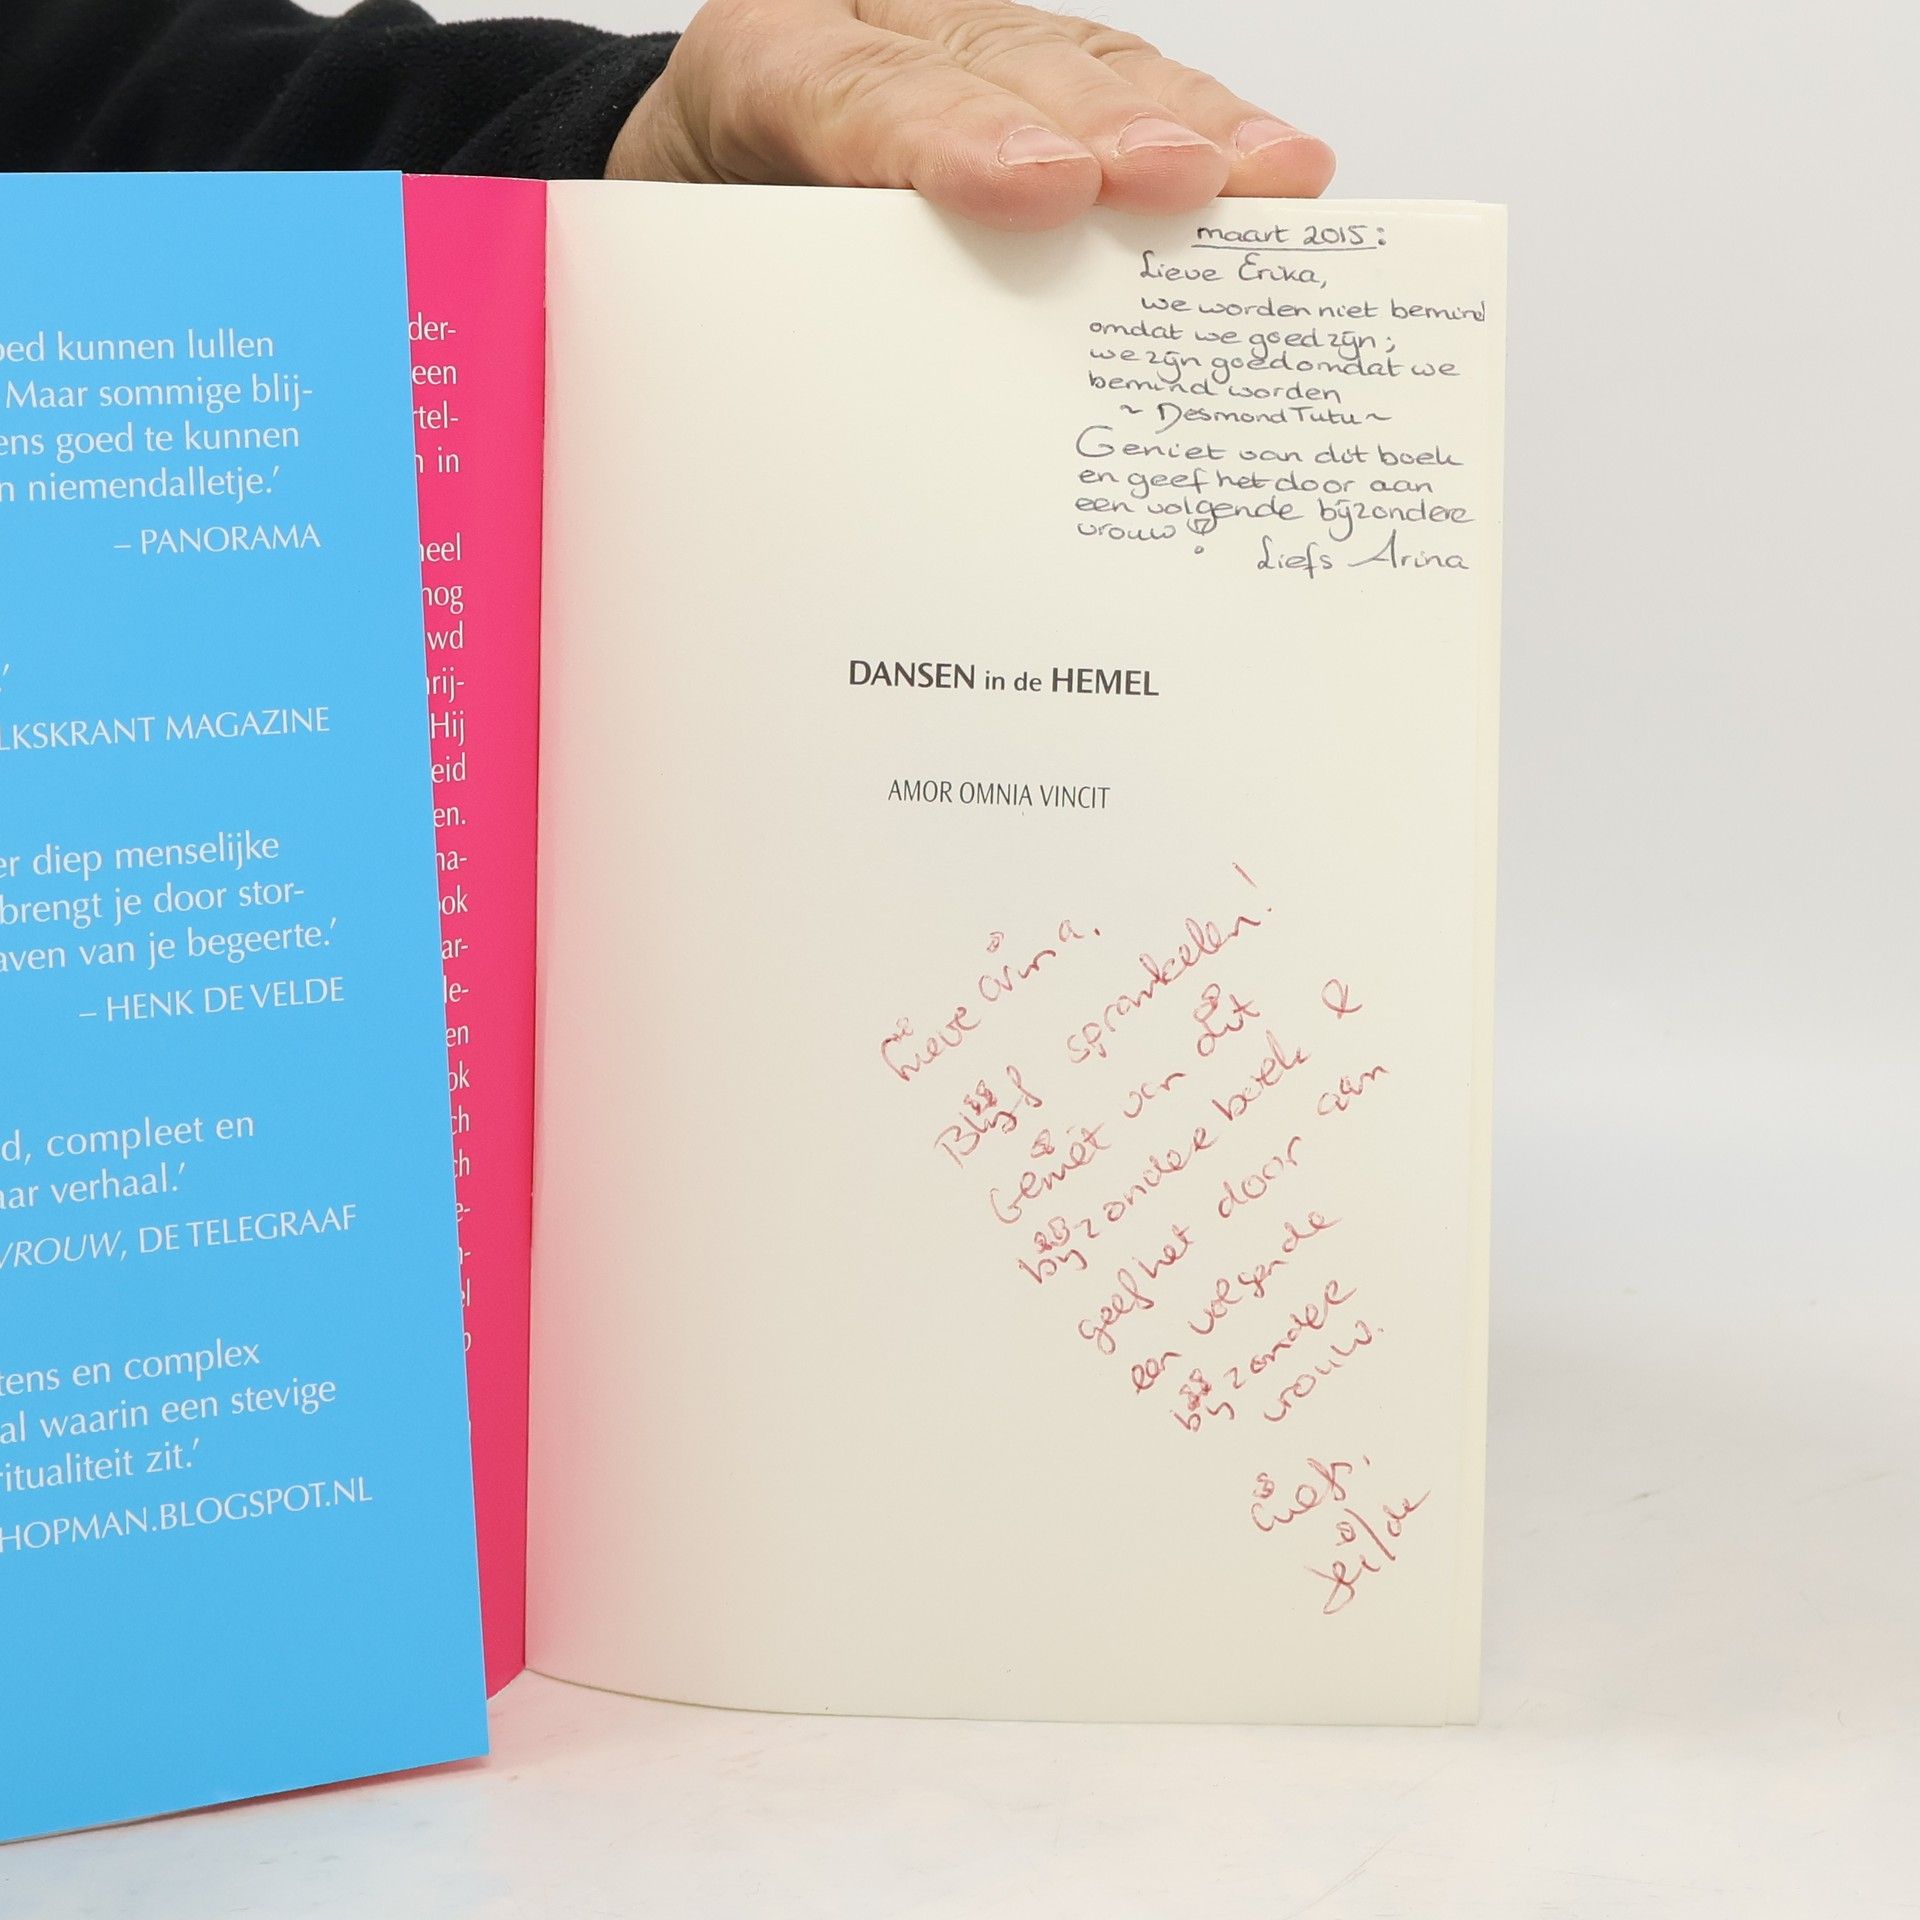 oed kunnen lullen
Maar sommige blij-
ens goed te kunnen
n niemendalletje.'
– PANORAMA
.'
LKSKRANT MAGAZINE
er diep menselijke
brengt je door stor-
aven van je begeerte.'
– HENK DE VELDE
d, compleet en
aar verhaal.'
VROUW, DE TELEGRAAF
tens en complex
al waarin een stevige
ritualiteit zit.'
HOPMAN.BLOGSPOT.NL
der-
een
rtel-
n in
heel
nog
wd
rij-
Hij
eid
en.
na-
ook
ar-
le-
en
ok
ch
ch
e-
n-
el
maart 2015:
Lieve Erika,
we worden niet bemind
omdat we goed zijn;
we zijn goed omdat we
bemind worden
~ Desmond Tutu ~
Geniet van dit boek
en geef het door aan
een volgende bijzondere
vrouw!
Liefs Arina
DANSEN in de HEMEL
AMOR OMNIA VINCIT
Lieve Arina.
Blijf sprankelen!
Geniet van dit
bijzondere boek &
geef het door aan
een volgende
bijzondere
vrouw.
Liefs,